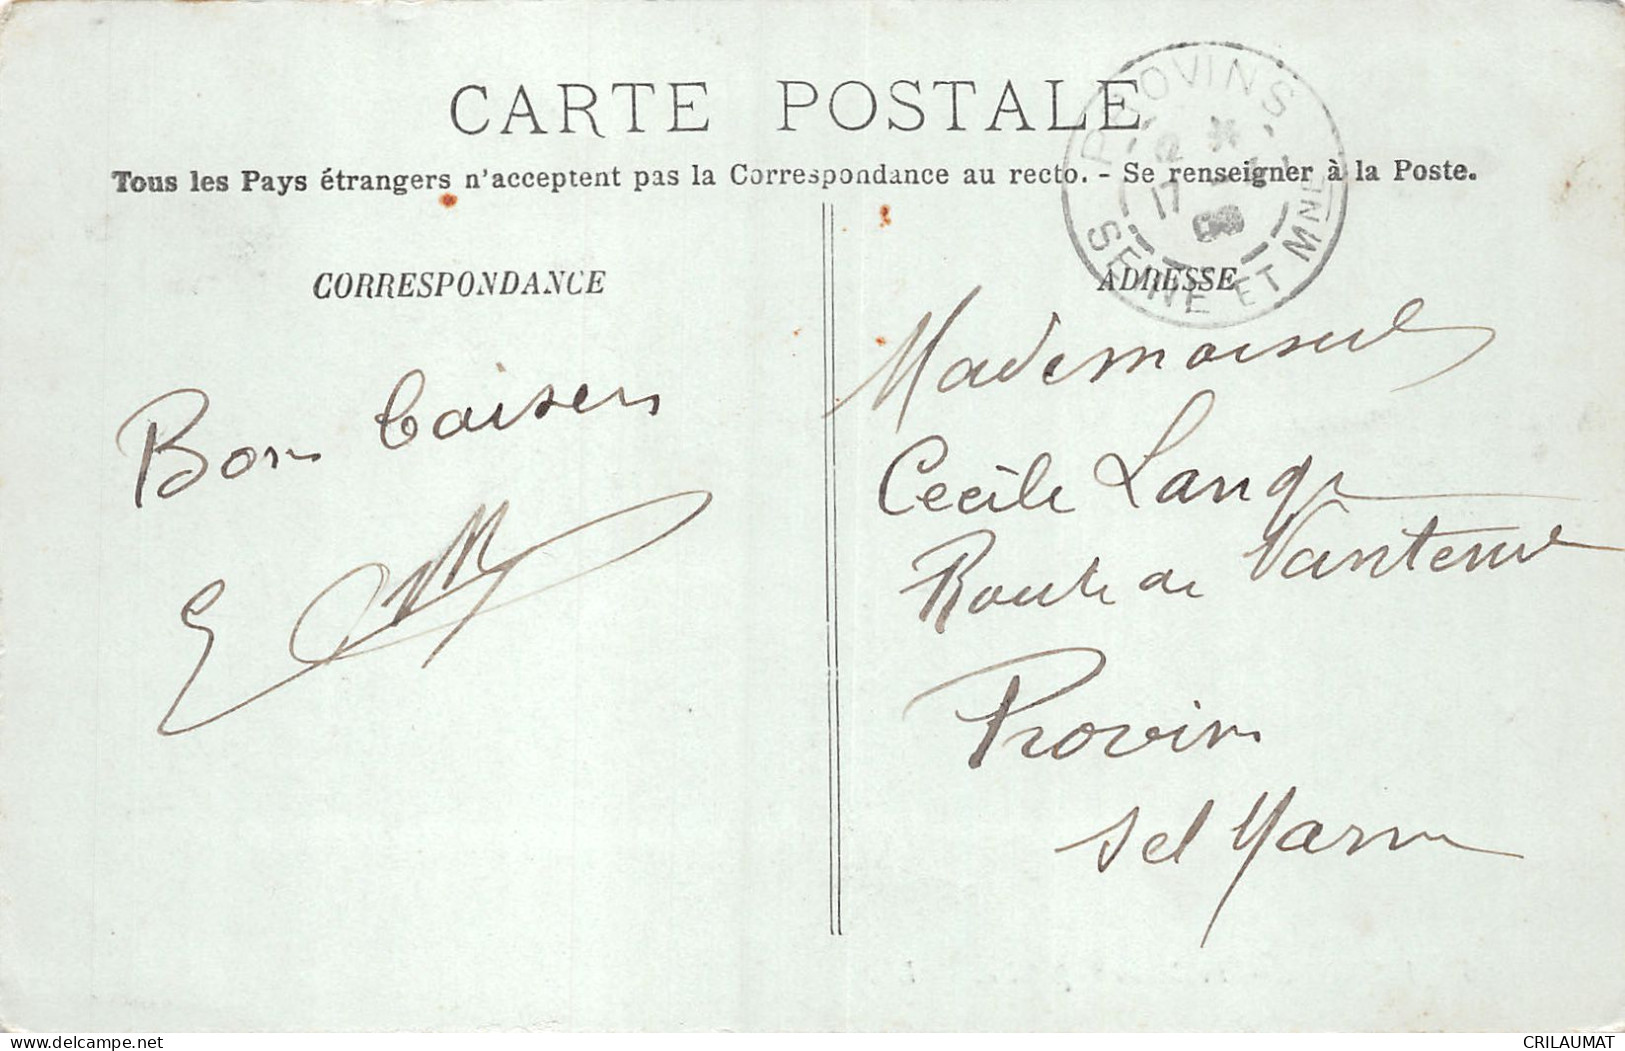 CARTE POSTALE
Tous les Pays étrangers n'acceptent pas la Correspondance au recto. - Se renseigner à la Poste.
PROVINS
12
17
SEINE ET MNE
CORRESPONDANCE
ADRESSE
Bons baisers
Mademoiselle
Cecile
Route de
Provins
S et Marne
delcampe.net
CRILAUMAT